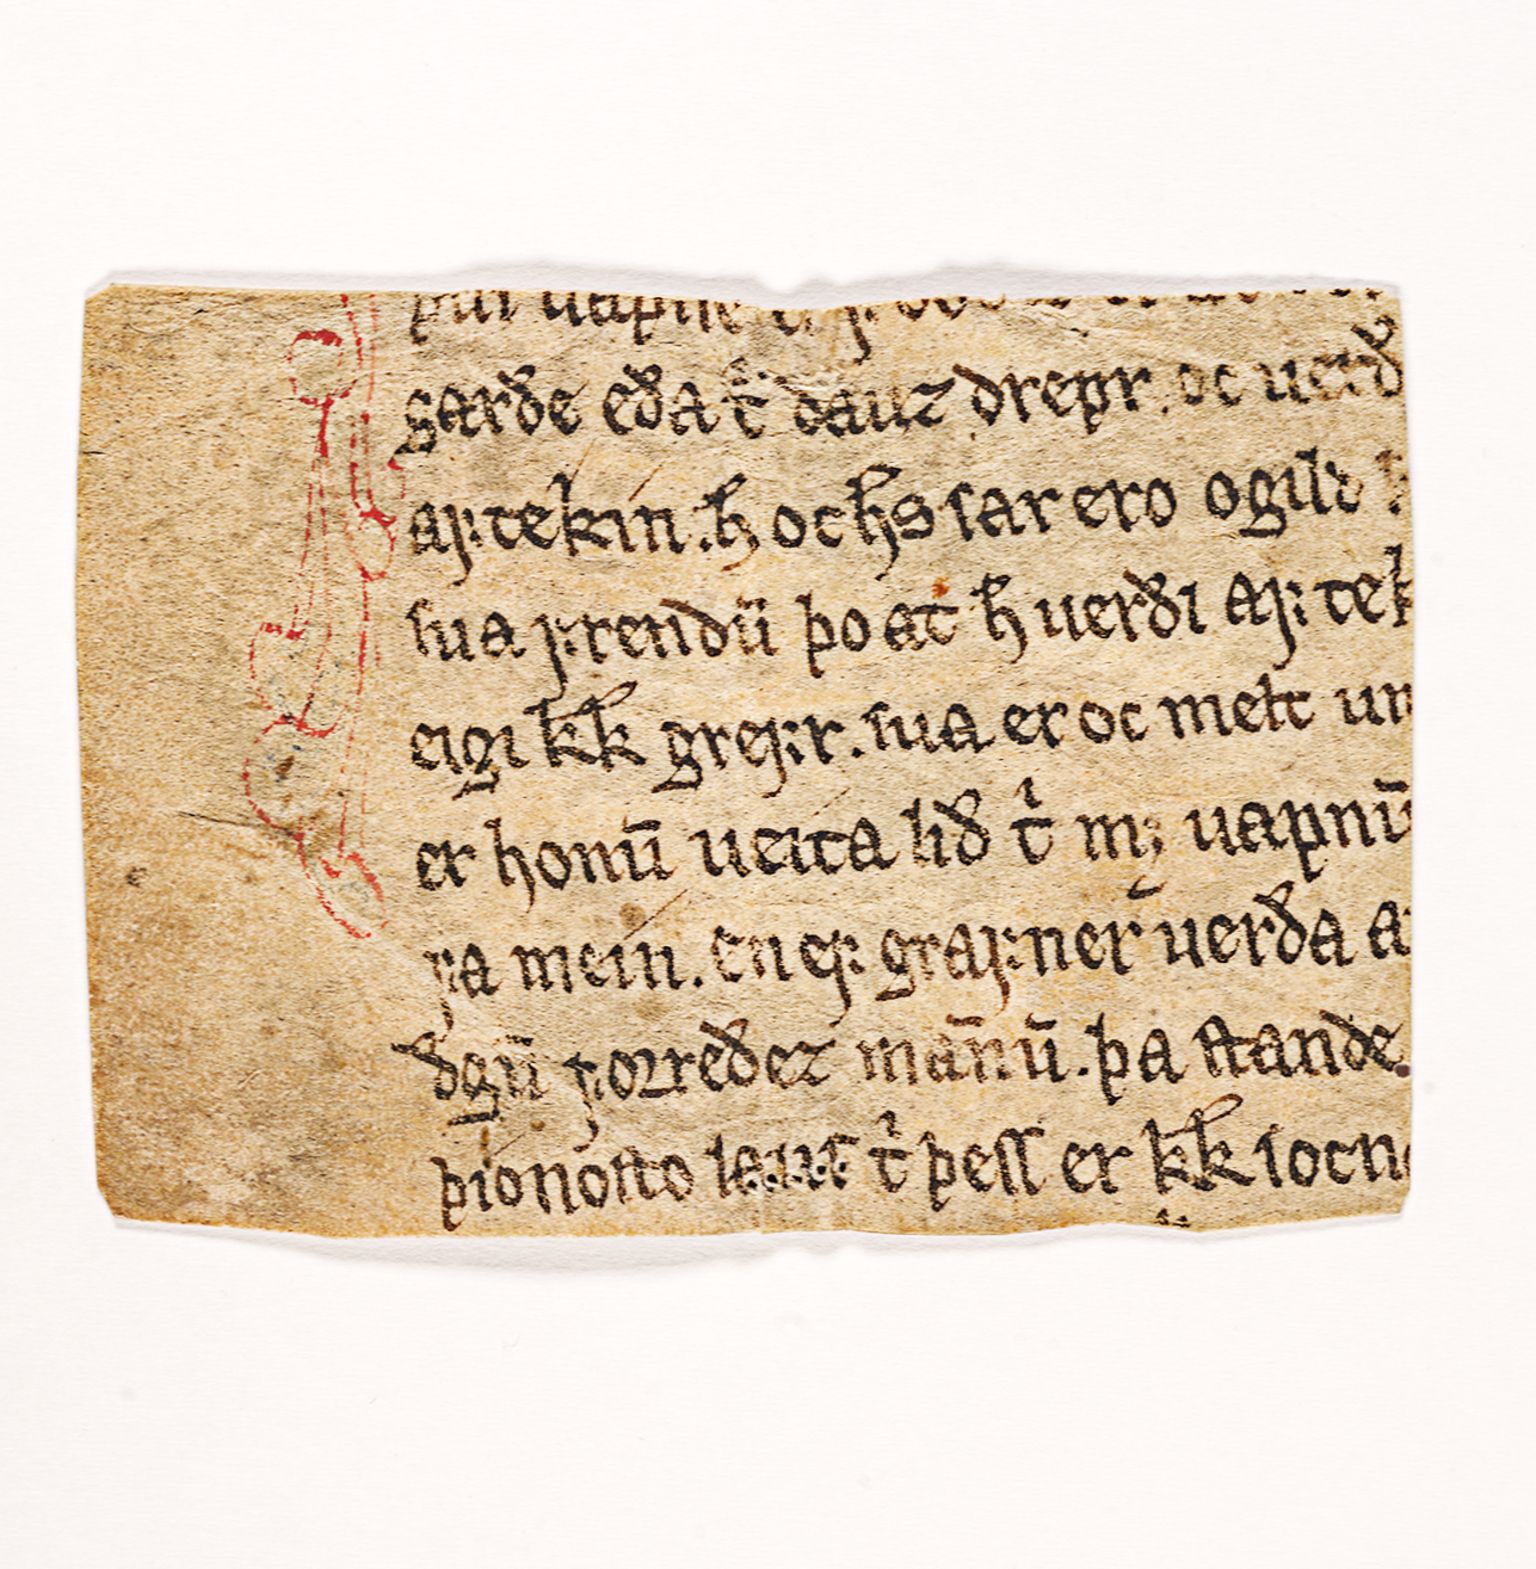 þui uapne
garðe eða t̉ dauz drepr. oc uerð
aꝼ tekin. h̄ oc h̄s sar ero ogild
sua ꝼrendū þo at h̄ uerði aꝼ tek
eigi kk greꝼr. sua er oc melt um
er honū ueita lið t̉ mꝫ uapnū
ra mein. en eꝼ graꝼner verða a
ðgū ꝼoꝛreðez mānū. þa stande
þionosto laus t̉ þess er kk iocn